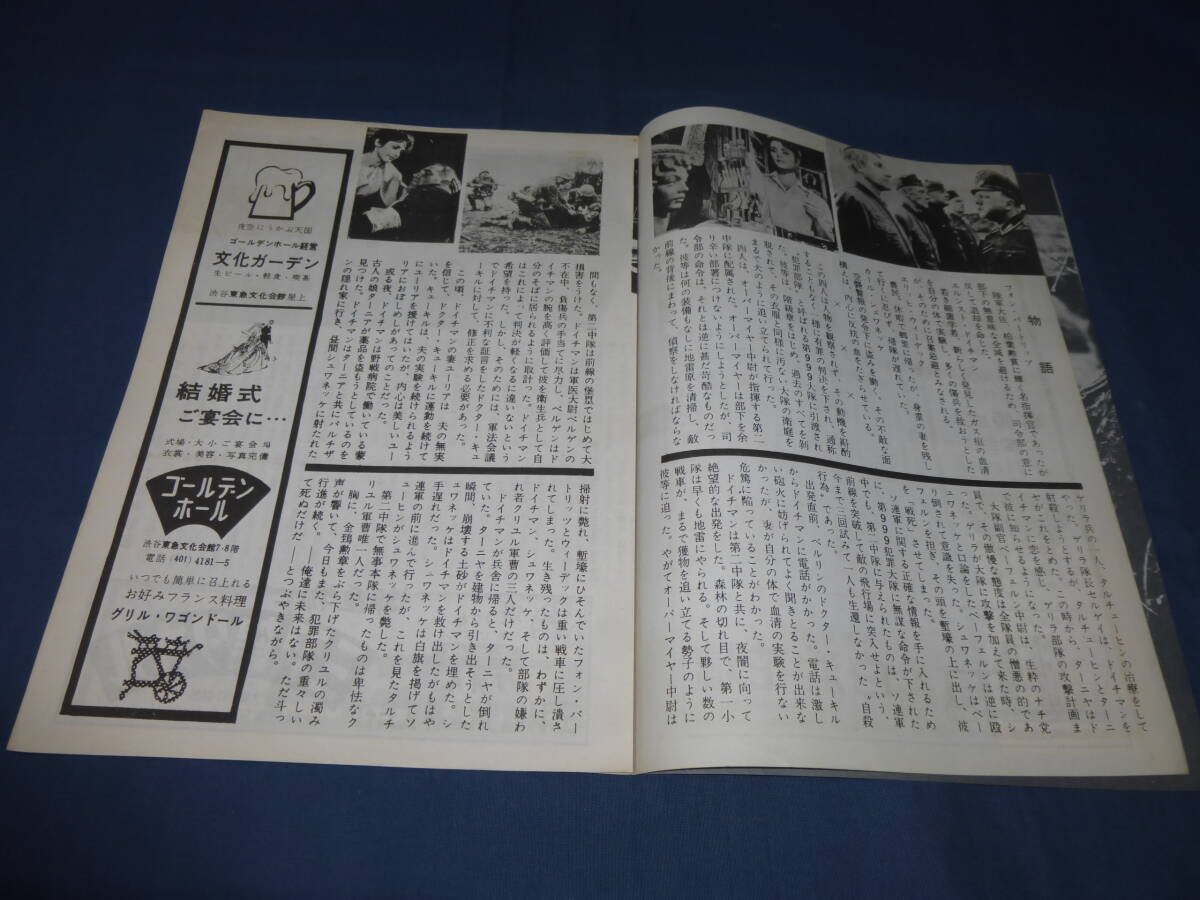 物語
フォン・バートリッツ
陸軍大佐、柏葉勲賞に輝く名指揮官であったが
部下の無意味な全滅を避けるため、司令部の意に
反して退却を命じた。
エルンスト・ドイチマン
若き細菌学者。新たしく発見したガス疽の血清
を自分の体で実験し、多くの傷兵を救おうとした
が、そのために召集忌避とみなされる。
エリッヒ・ウィーデック
休暇で戦塁に帰ったが、身重の妻を残し
て行くに忍びず、帰隊が遅れていた。
カール・シュワネッケ
空襲警報の発令下に盗みを働く。その不敵な面
構えは、内心に反抗の血をたぎらせている。
× × ×
この四人は人物を観察されず、その動機を斟酌
することなく、一様に有罪の判決を下され、通称
〝犯罪部隊〟と呼ばれる第999大隊に引渡され
た。彼等は、階級章をはじめ、過去のすべてを剥
脱されて、その衣服と同様に汚ない大隊の衛庭を
まるで犬のように追い立てられて行った。
四人は、オーバーマイヤー中尉が指揮する第二
中隊に配属された。オーバーマイヤーは部下を余
り辛い部署につけないようにしようとしたが、司
令部の命令は、それとは逆に甚だ苛酷なものだっ
た。彼等は何の装備もなしに地雷原を清掃し、敵
前線の背後にまわって、偵察をしなければならな
かった。
間もなく、第二中隊は前線の堡塁ではじめて大
損害をうけた。ドイチマンは軍医大尉ベルゲンの
不在中、負傷兵の手当てに尽力し、ベルゲンはド
イチマンの腕を高く評価して彼を衛生兵として自
分のそばに居られるように取計った。ドイチマン
はこれによって判決が軽くなるに違いないという
希望を持った。しかし、そのためには、軍法会議
でドイチマンに不利な証言をしたドクター・キュ
ーキルに対して、修正を求める必要があった。
この頃、ドイチマンの妻ユーリアは、夫の無実
を信じて、ドクター・キューキルに運動を続けて
いた。キューキルは、夫の実験を続けられるよう
にユーリアを援けてはいたが、内心は美しいユー
リアにおぼしめしがあってのことだった。
或る夜、ドイチマンは野戦病院で働いている蒙
古人の娘ターニアが薬品を盗もうとしているのを
見つけた。ドイチマンはターニアと共にパルチザ
ンの隠れ家に行き、昼間シュワネッケに射たれた
ゲリラ兵の一人、タルチューヒンの治療をして
やった。ゲリラ隊長セルゲイは、ドイチマンを
射殺しようとするが、タルチューヒンとターニ
ヤがこれをとめた。この時から、ターニヤはド
イチマンに恋を感じ、ゲリラ部隊の攻撃計画ま
で彼に知らせるようになった。
大隊副官ベーフェルン中尉は、生粋のナチ党
員。その傲慢な態度は全隊員の憎悪の的であ
った。ゲリラが大隊に攻撃を加えて来た時、シ
ュワネッケと口論をしたベーフェルンは逆に殴
り倒されて意識を失った。シュワネッケはベー
フェルンを担ぎ、その頭を塹壕の上に出し、彼
を〝戦死〟させてしまった。
ソ連軍に関する正確な情報を手に入れるため
に、第999犯罪大隊に無謀な命令が下された
中でも、第二中隊に与えられたものは、ソ連軍
前線を突破して敵の飛行場に突入せよという、
今まで三回試みて一人も生還しなかった〝自殺
行為〟であった。
出発直前、ベルリンのドクター・キューキル
からドイチマンに電話がかかった。電話は激し
い砲火に妨げられてよく聞きとることが出来な
かったが、妻が自分の体で血清の実験を行ない
危篤に陥っていることがわかった。
ドイチマンは第二中隊と共に、夜闇に向って
絶望的な出発をした。森林の切れ目で、第一小
隊は早くも地雷にやられる。そして夥しい数の
戦車が、まるで獲物を追い立てる勢子のように
彼等に迫った。やがてオーバーマイヤー中尉は
掃射に斃れ、塹壕にひそんでいたフォン・バー
トリッツとウィーデックは重い戦車に圧し潰さ
れてしまった。生き残ったものは、わずかに、
ドイチマン、シュワネッケ、そして部隊の嫌わ
れ者クリユル軍曹の三人だけだった。
ドイチマンが兵舎に帰ると、ターニヤが倒れ
ていた。ターニヤを建物から引き出そうとした
瞬間、崩壊する土砂がドイチマンを埋めた。シ
ュワネッケはドイチマンを救け出したがもはや
手遅れだった。シュワネッケは白旗を掲げてソ
連軍の前に進んで行ったが、これを見たタルチ
ューヒンがシュワネッケを斃した。
第二中隊で無事本隊に帰ったものは卑怯なク
リユル軍曹唯一人だった。
胸に、金鵄勲章をぶら下げたクリユルの濁み
声が響いて、今日もまた、犯罪部隊の重々しい
行進が続く。――俺達に未来はない。ただ斗っ
て死ぬだけだ――とつぶやきながら。
夜空にうかぶ天国
ゴールデンホール経営
文化ガーデン
生ビール・軽食・喫茶
渋谷東急文化会館屋上
結婚式
ご宴会に…
式場・大小ご宴会場
衣裳・美容・写真完備
ゴールデン
ホール
渋谷東急文化会館7・8階
電話(401)4181―5
いつでも簡単に召上れる
お好みフランス料理
グリル・ワゴンドール